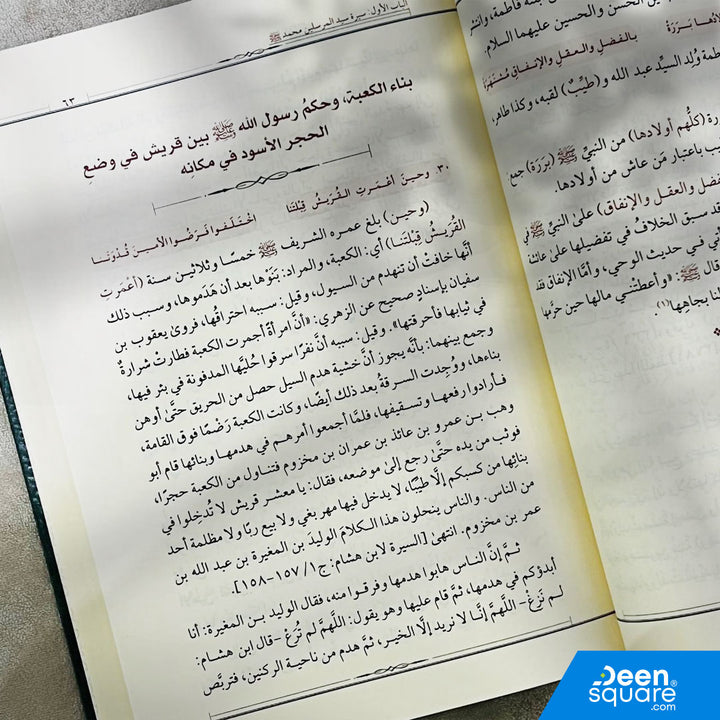 الباب الأول: سيرة سيد المرسلين محمد ﷺ
٦٣
بناء الكعبة، وحكم رسول الله ﷺ بين قريش في وضعِ
الحجر الأسود في مكانه
٣٠. وحينَ أعْمَرتِ القُرَيشُ قِبْلَتنا
(وحين) بلغ عمره الشريف ﷺ خمسًا وثلاثين سنة (أعْمَرتِ
القُرَيشُ قِبْلَتنا) أي: الكعبة، والمراد: بَنَوْها بعد أن هَدَموها، وسبب ذلك
أنَّها خافتْ أن تنهدم من السيول، وقيل: سببه احتراقُها، فروىٰ يعقوب بن
سفيان بإسنادٍ صحيح عن الزهري: «أنَّ امرأةً أجمرت الكعبة فطارتْ شرارةٌ
في ثيابها فأحرقتها»، وقيل: سببه أنَّ نفرًا سرقوا حُليَّها المدفونة في بئر فيها،
وجمع بينهما: بأنَّه يجوز أنَّ خشية هدم السيل حصل من الحريق حتَّىٰ أوهن
بناءها، ووُجدت السرقةُ بعد ذلك أيضًا، وكانت الكعبة رَضْمًا فوق القامة،
فأرادوا رفعها وتسقيفها، فلمَّا أجمعوا أمرهم في هدمها وبنائها قام أبو
وهب بن عمرو بن عائذ بن عمران بن مخزوم فتناول من الكعبة حجرًا،
فوثب من يده حتَّىٰ رجع إلىٰ موضعه، فقال: يا معشر قريش لا تُدخِلوا في
بنائِها من كسبكم إلَّا طيِّبًا، لا يدخل فيها مهر بغي ولا بيع ربًا ولا مظلمة أحد
من الناس. والناس ينحلون هذا الكلامَ الوليدَ بن المغيرة بن عبد الله بن
عمر بن مخزوم. انتهىٰ [السيرة لابن هشام: ج١/ ١٥٧-١٥٨].
ثمَّ إنَّ الناس هابوا هدمها وفرقوا منه، فقال الوليد بن المغيرة: أنا
أبدؤكم في هدمها، ثمَّ قام عليها وهو يقول: اللَّهمَّ لم تُرَعْ -قال ابن هشام:
لم نَزِغْ- اللَّهمَّ إنَّا لا نريد إلَّا الخير، ثمَّ هدم من ناحية الركنين، فتربَّص
الحسن والحسين عليهما السلام.
بالفضلِ والعقلِ والإنفاقِ مُشتَهِرَةْ
فاطمة وُلد السيِّد عبد الله و(طيِّبٌ) لقبه، وكذا طاهر،
(كلُّهم أولادها) من النبيِّ ﷺ (بَرَرَة) جمع
باعتبار مَن عاش من أولادها.
والعقل والإنفاق) علىٰ النبيِّ ﷺ في
قد سبق الخلافُ في تفضيلها علىٰ عائشة
في حديث الوحي، وأمَّا الإنفاق فقد
قال ﷺ: «وأعطتْني مالها حين حرَمَها
بجاهِها(١).
Deen
square
.com